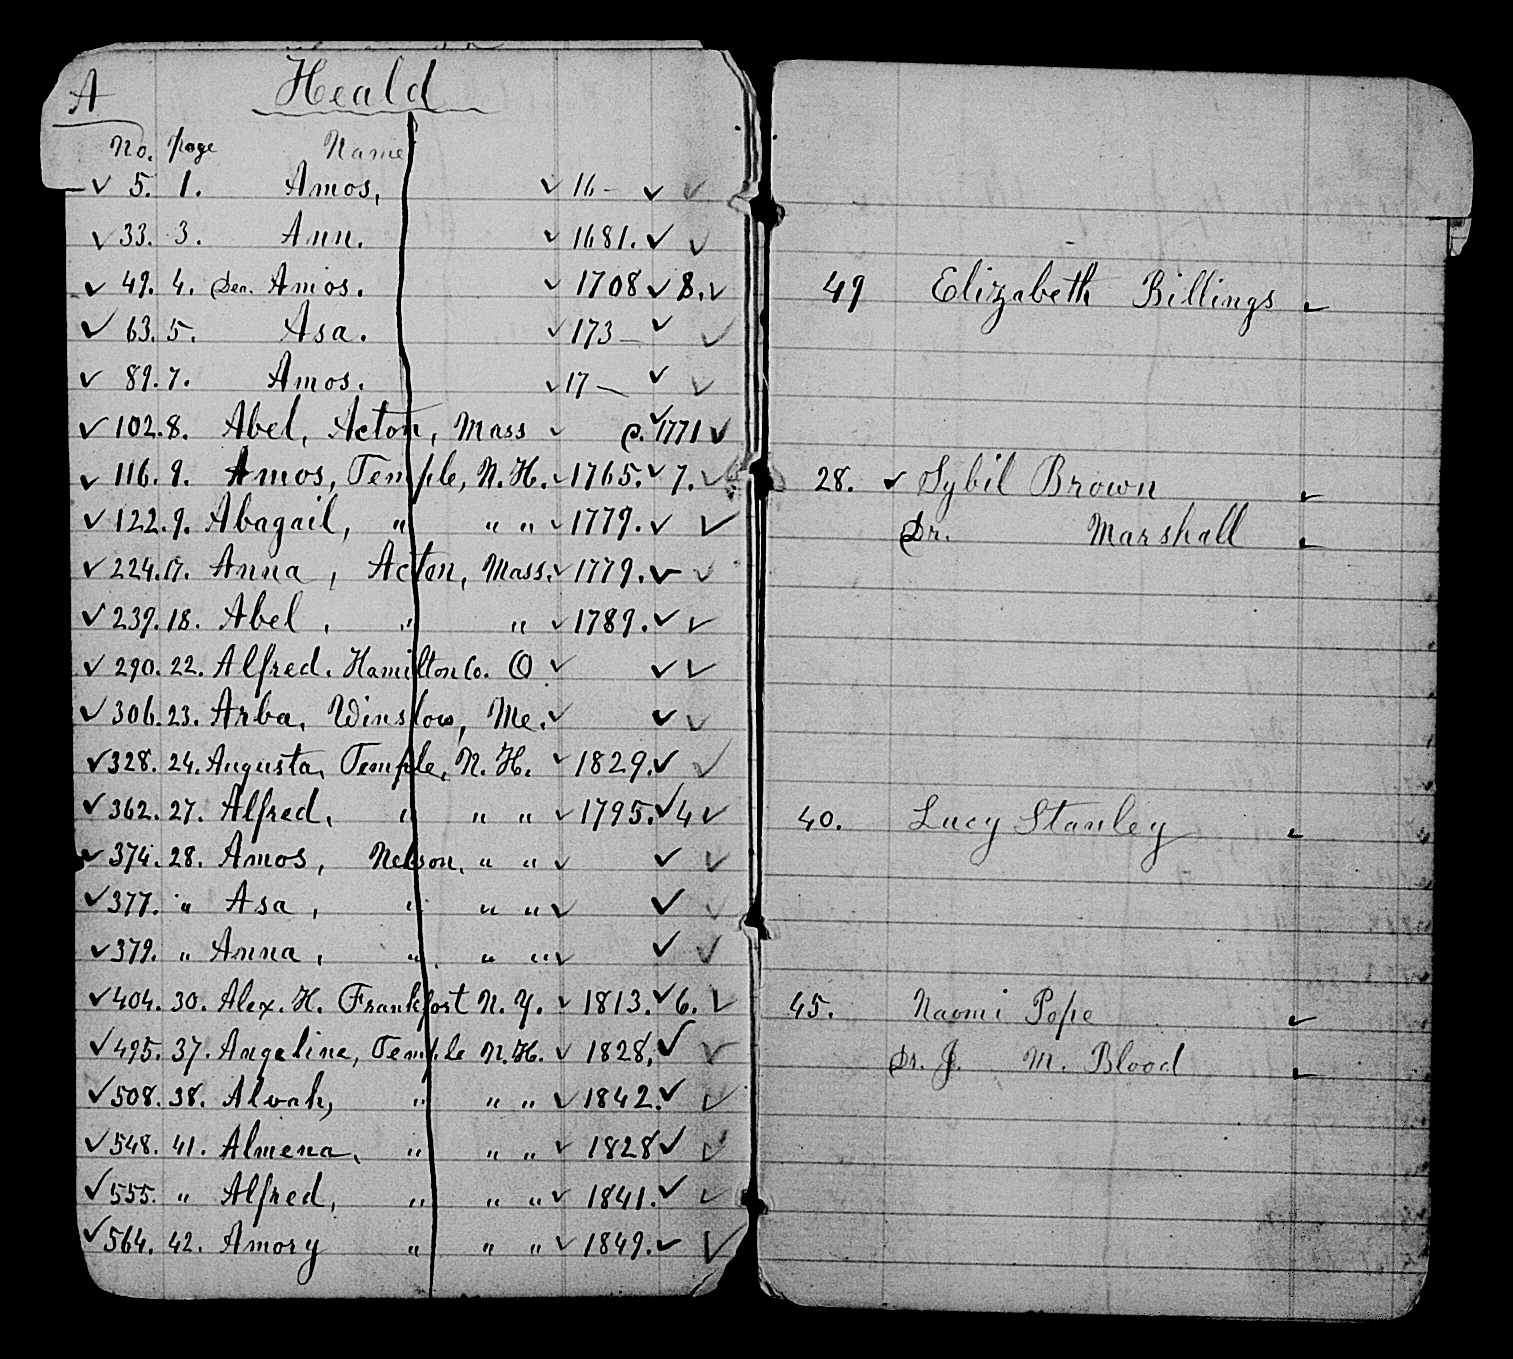 A Heald
No. page Name
✓ 5. 1. Amos, ✓ 16– ✓ ✓
✓ 33. 3. Ann. ✓ 1681. ✓ ✓
✓ 49. 4. Dea. Amos. ✓ 1708 ✓ 8. ✓
✓ 63. 5. Asa. ✓ 173– ✓ ✓
✓ 89. 7. Amos. ✓ 17– ✓ ✓
✓ 102. 8. Abel, Acton, Mass ✓ c. ✓ 1771 ✓
✓ 116. 9. Amos, Temple, N. H. ✓ 1765. ✓ 7. ✓
✓ 122. 9. Abagail, " " " ✓ 1779. ✓ ✓
✓ 224. 17. Anna, Acton, Mass. ✓ 1779. ✓ ✓
✓ 239. 18. Abel, " " ✓ 1789. ✓ ✓
✓ 290. 22. Alfred. Hamilton Co. O ✓ ✓ ✓
✓ 306. 23. Arba, Winslow, Me. ✓ ✓ ✓
✓ 328. 24. Augusta, Temple, N. H. ✓ 1829. ✓ ✓
✓ 362. 27. Alfred, " " " ✓ 1795. ✓ 4 ✓
✓ 374. 28. Amos, Nelson, " " ✓ ✓ ✓
✓ 377. " Asa, " " " ✓ ✓ ✓
✓ 379. " Anna, " " " ✓ ✓ ✓
✓ 404. 30. Alex. H. Frankfort N. Y. ✓ 1813. ✓ 6. ✓
✓ 495. 37. Angeline, Temple N. H. ✓ 1828. ✓ ✓
✓ 508. 38. Alvah, " " " ✓ 1842. ✓ ✓
✓ 548. 41. Almena, " " " ✓ 1828 ✓ ✓
✓ 555. " Alfred, " " " ✓ 1841. ✓ ✓
✓ 564. 42. Amory " " " ✓ 1849. ✓ ✓
49 Elizabeth Billings ✓
28. ✓ Sybil Brown ✓
Dr. Marshall ✓
40. Lucy Stanley ✓
45. Naomi Pope ✓
Dr. J. M. Blood ✓